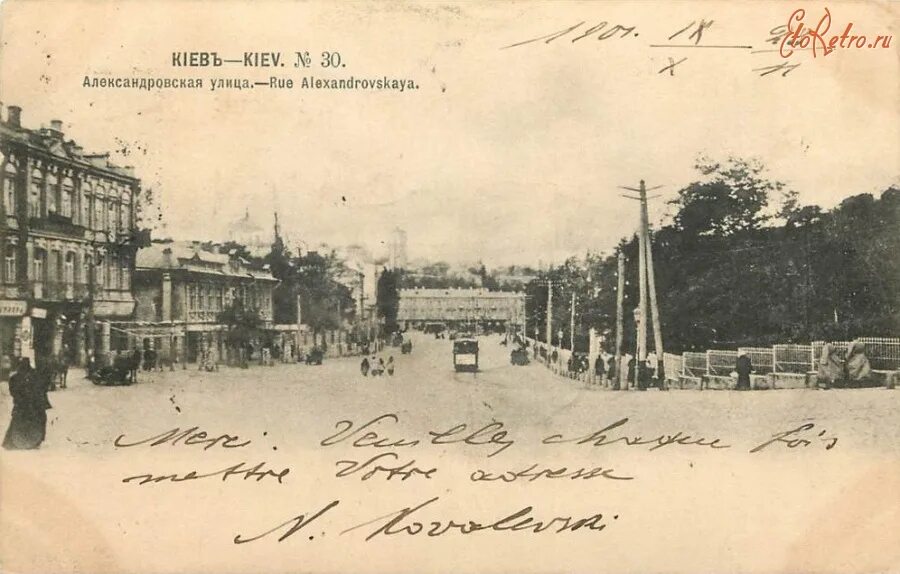 КІЕВЪ—KIEV. № 30.
Александровская улица.—Rue Alexandrovskaya.
1901. IX
X 11
EtoRetro.ru
Merci. Veuillez chaque fois
mettre Votre adresse
N. Kovalevski